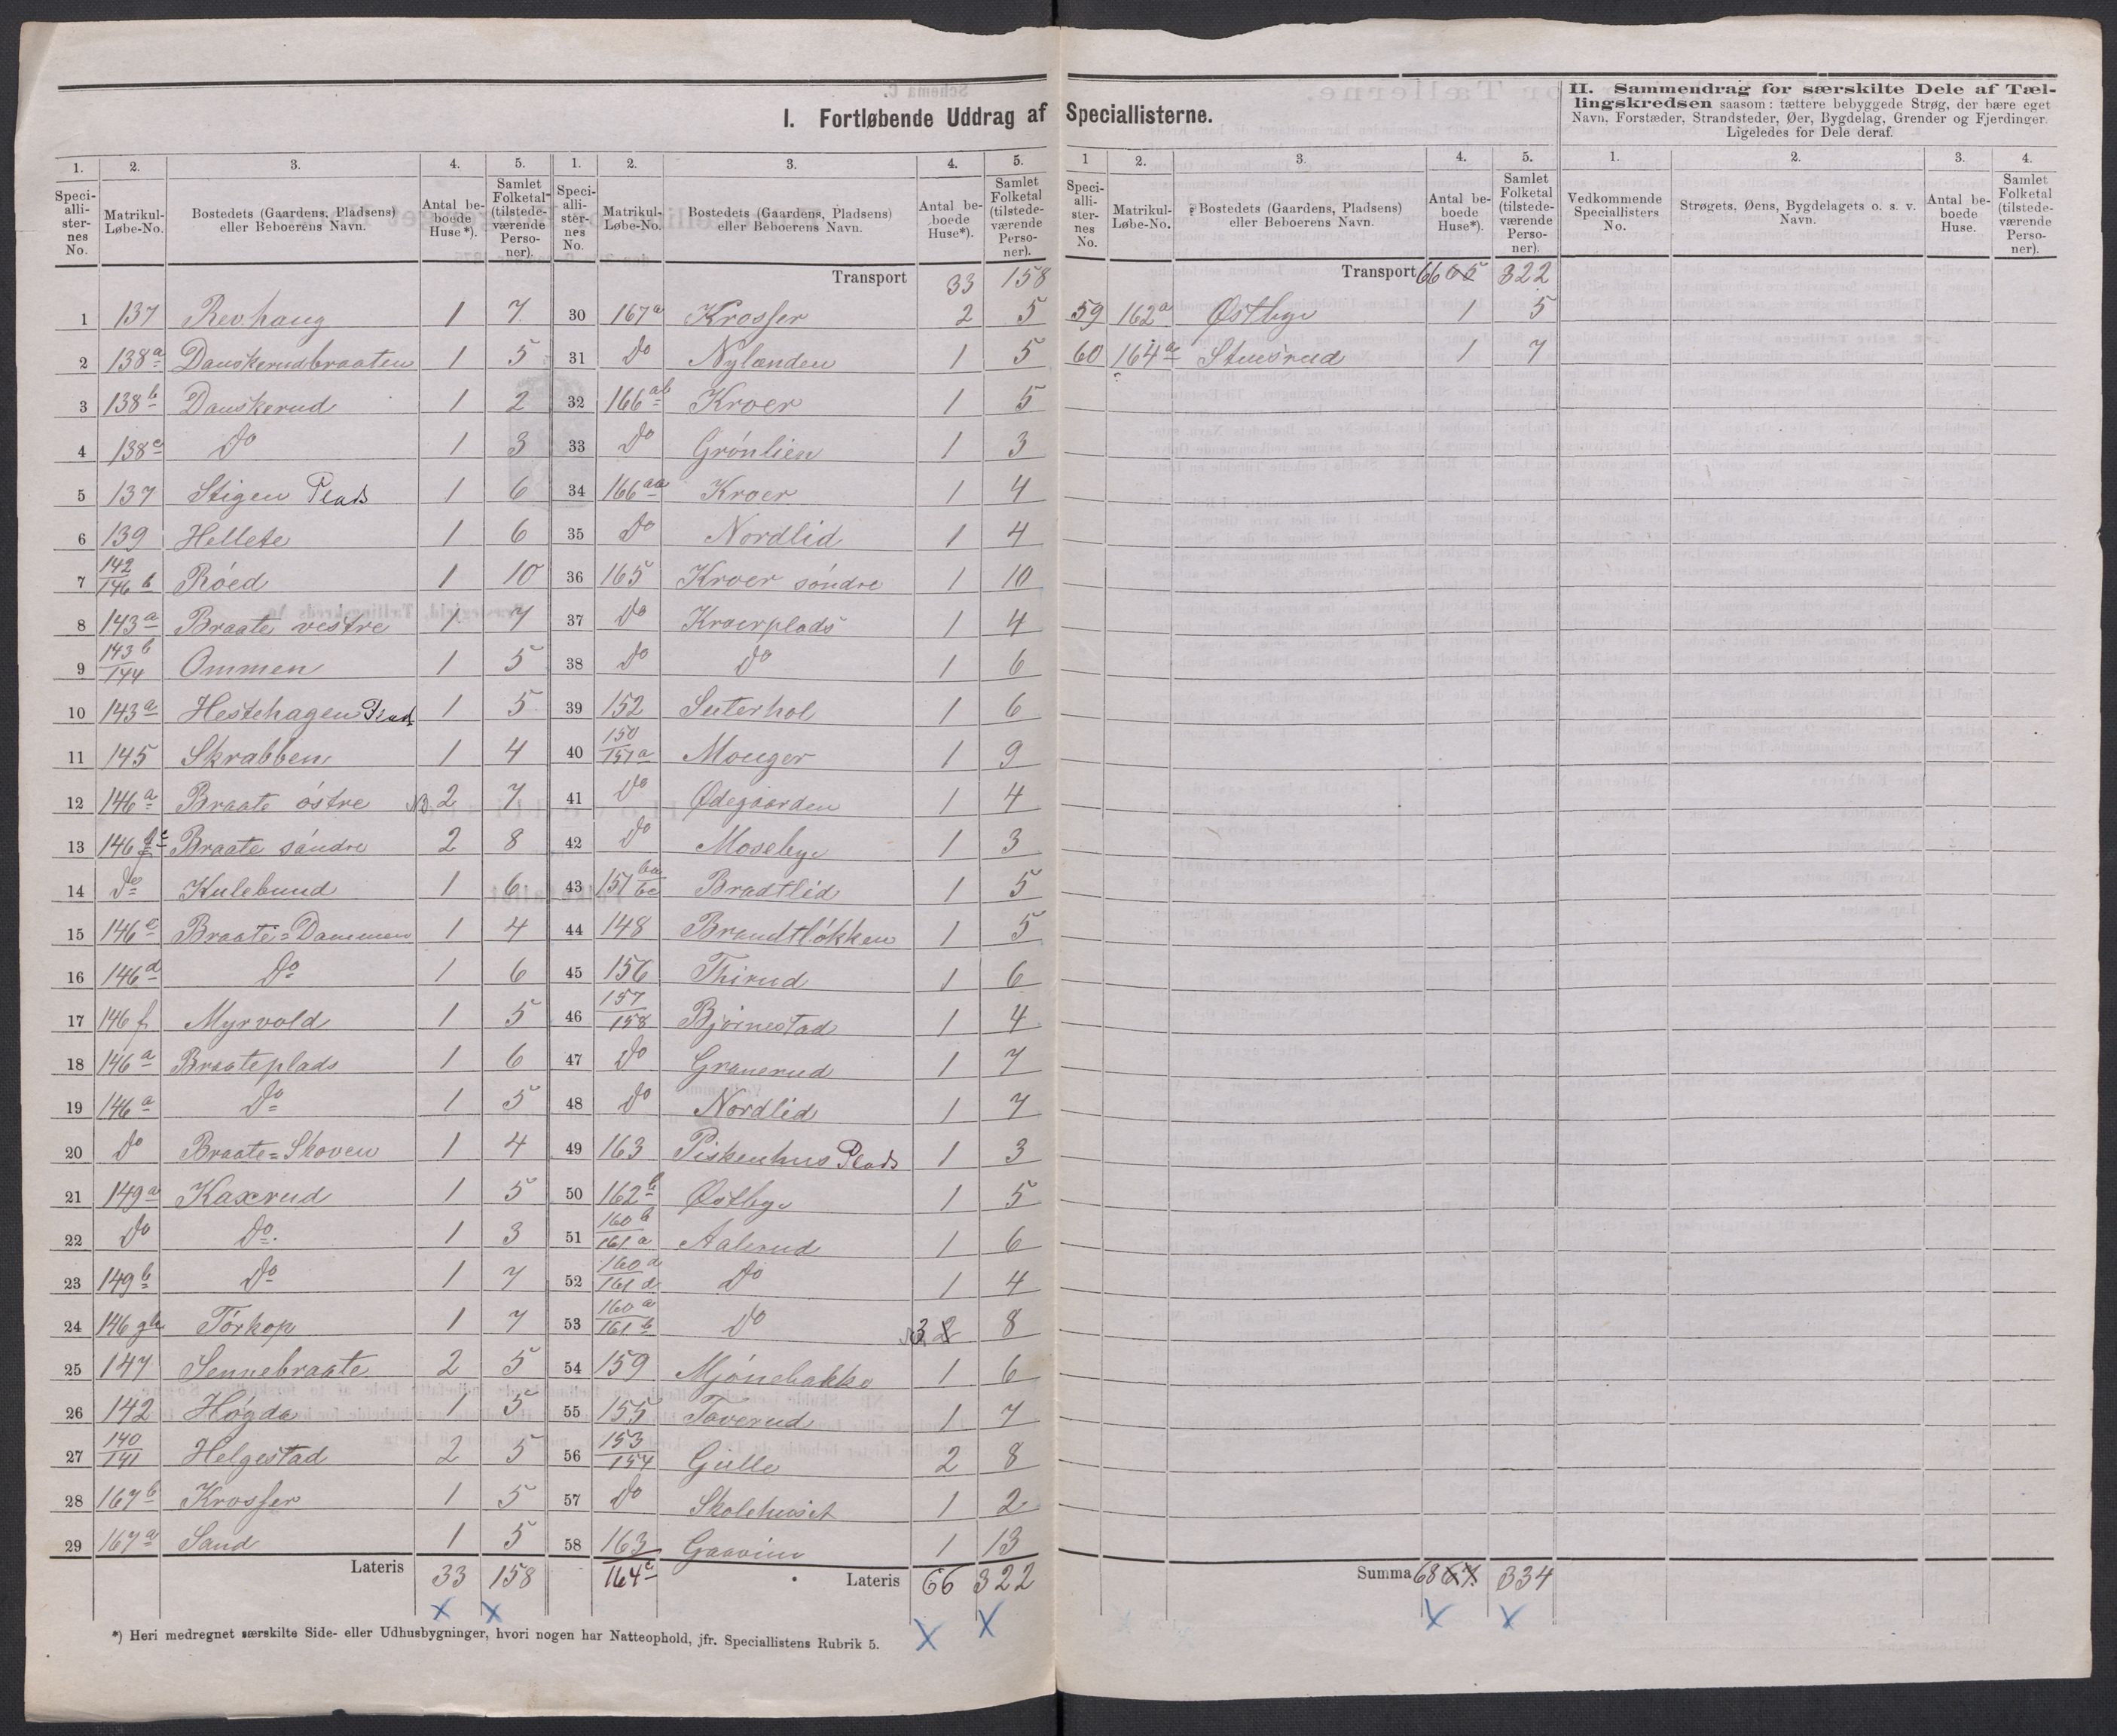 I. Fortløbende Uddrag af Speciallisterne.
II. Sammendrag for særskilte Dele af Tællingskredsen saasom: tættere bebyggede Strøg, der bære eget
Navn, Forstæder, Strandsteder, Øer, Bygdelag, Grender og Fjerdinger.
Ligeledes for Dele deraf.
1. 2. 3. 4. 5. 1. 2. 3. 4. 5. 1 2. 3. 4. 5. 1. 2. 3. 4.
Speciallisternes No. Matrikul-Løbe-No. Bostedets (Gaardens, Pladsens) eller Beboerens Navn. Antal beboede Huse*). Samlet Folketal (tilstedeværende Personer).
Speciallisternes No. Matrikul-Løbe-No. Bostedets (Gaardens, Pladsens) eller Beboerens Navn. Antal beboede Huse*). Samlet Folketal (tilstedeværende Personer).
Speciallisternes No. Matrikul-Løbe-No. Bostedets (Gaardens, Pladsens) eller Beboerens Navn. Antal beboede Huse*). Samlet Folketal (tilstedeværende Personer).
Vedkommende Speciallisters No. Strøgets, Øens, Bygdelagets o. s. v. Navn. Antal beboede Huse. Samlet Folketal (tilstedeværende Personer).
1 137 Revhaug 1 7
2 138a Danskerudbraaten 1 5
3 138b Danskerud 1 2
4 138c Do 1 3
5 137 Stigen Plads 1 6
6 139 Hellete 1 6
7 142/146 b Röed 1 10
8 143a Braate vestre 1 7
9 143b/144 Ommen 1 5
10 143a Hestehagen Plads 1 5
11 145 Skrabben 1 4
12 146a Braate östre NB 2 7
13 146 Braate söndre 2 8
14 Do Kulebund 1 6
15 146c Braate=Dammen 1 4
16 146d Do 1 6
17 146f Myrvold 1 5
18 146a Braateplads 1 6
19 146a Do 1 5
20 Do Braate=Skoven 1 4
21 149a Kaxrud 1 5
22 Do Do 1 3
23 149b Do 1 7
24 146 gh Törkop 1 7
25 147 Sennebraate 2 5
26 142 Högda 1 5
27 140/141 Helgestad 2 5
28 167b Krosser 1 5
29 167a Sand 1 5
Lateris 33 158
Transport 33 158
30 167a Krosser 2 5
31 Do Nylænden 1 5
32 166ab Kroer 1 5
33 Do Grönlien 1 3
34 166aa Kroer 1 4
35 Do Nordlid 1 4
36 165 Kroer söndre 1 10
37 Do Kroerplads 1 4
38 Do Do 1 6
39 152 Suterhol 1 6
40 150/151a Mouger 1 9
41 Do Ødegaarden 1 4
42 Do Mosebye 1 3
43 151 ba/bc Bradtlid 1 5
44 148 Brandtlökken 1 5
45 156 Thirud 1 6
46 157/158 Björnestad 1 4
47 Do Granerud 1 7
48 Do Nordlid 1 7
49 163 Piskenhus Plads 1 3
50 162b Østbye 1 5
51 160b/161a Aalerud 1 6
52 160d/161d Do 1 4
53 160a/161b Do 3 2 8
54 159 Mjönebakke 1 6
55 155 Taverud 1 7
56 153/154 Gulle 2 8
57 Do Skolehuset 1 2
58 163/164c Gaavim 1 13
Lateris 66 322
Transport 66 65 322
59 162a Østbye 1 5
60 164a Stuesrud 1 7
Summa 68 67 334
*) Heri medregnet særskilte Side- eller Udhusbygninger, hvori nogen har Natteophold, jfr. Speciallistens Rubrik 5.